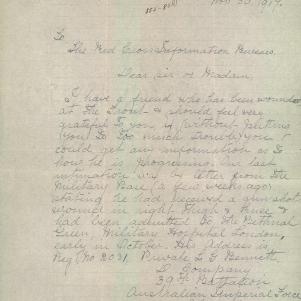 Nov 30. 1917.
To
The Red Cross Information Bureau.
Dear Sir or Madam,
I have a friend who has been wounded
at the Front & should feel very
grateful to you if (without putting
you to too much trouble) you
could get any information as to
how he is progressing. Our last
intimation by letter from the
Military Base (a few weeks ago)
stating he had received a gunshot
wound in right thigh & knee &
had been admitted to the Bethnal
Green, Military Hospital London,
early in October. His address is
Reg. No 2031. Private L G Bennett
Company
39th Battalion
Australian Imperial Force